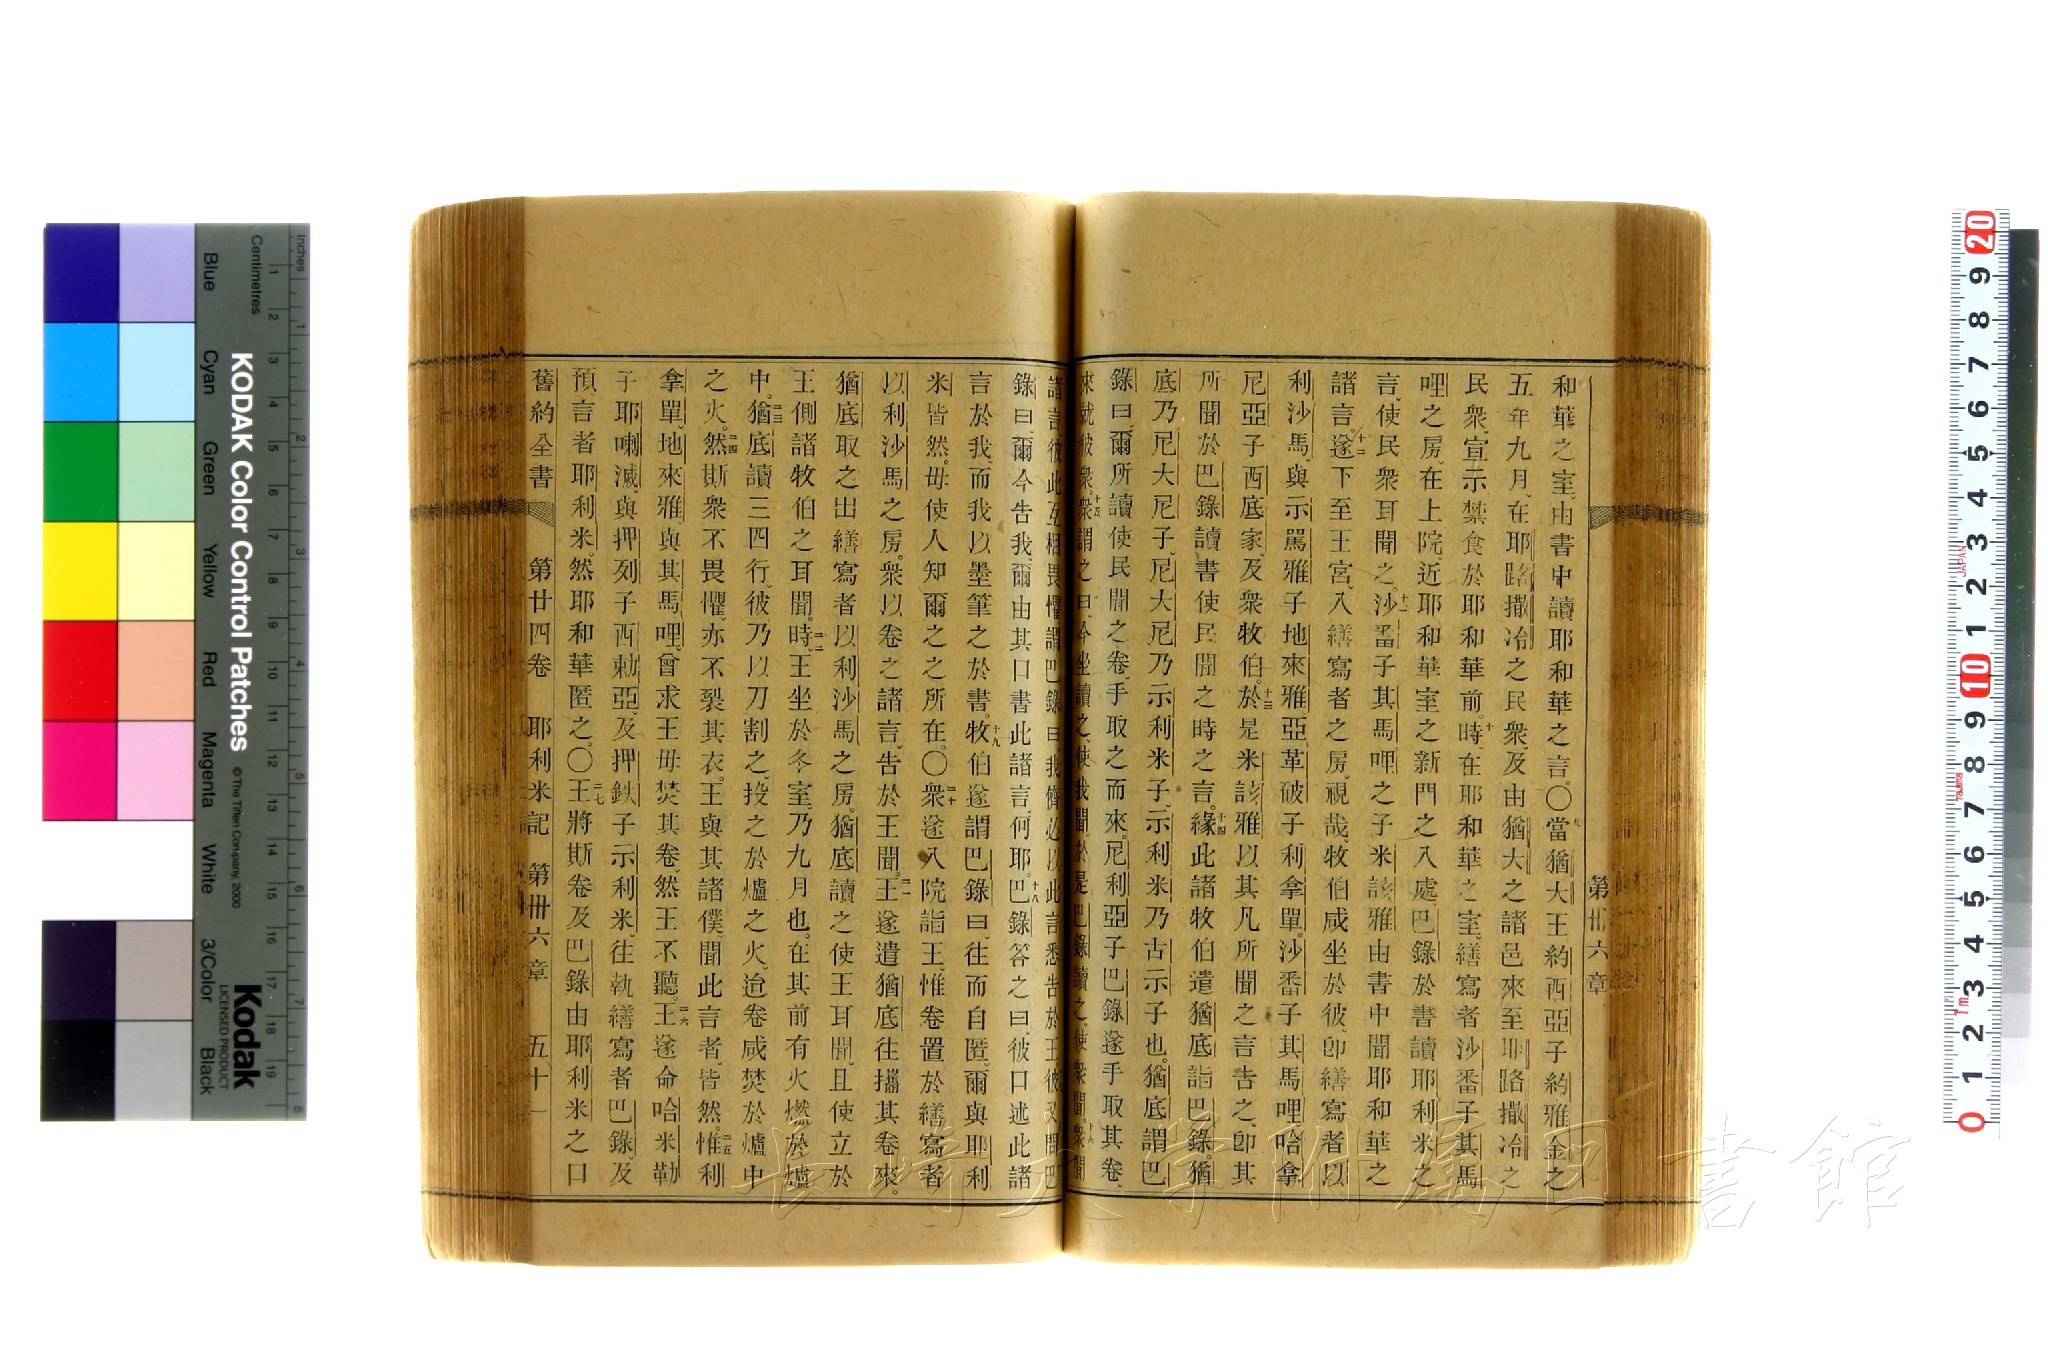 第卅六章
和華之室、由書中讀耶和華之言。〇九當猶大王約西亞子約雅金之
五年九月、在耶路撒冷之民衆、及由猶大之諸邑來至耶路撒冷之
民衆、宣示禁食於耶和華前。十時、在耶和華之室、繕寫者沙番子其馬
哩之房、在上院、近耶和華室之新門之入處、巴錄於書讀耶利米之
言、使民衆耳聞之。十一沙番子其馬哩之子米該雅由書中聞耶和華之
諸言。十二遂下至王宮、入繕寫者之房、視哉、牧伯咸坐於彼、卽繕寫者以
利沙馬、與示罵雅子地來雅、亞革破子利拿單、沙番子其馬哩、哈拿
尼亞子西底家、及衆牧伯。十三於是米該雅以其凡所聞之言告之、卽其
所聞於巴錄讀書使民聞之時之言。十四緣此諸牧伯遣猶底詣巴錄、猶
底乃尼大尼子、尼大尼乃示利米子、示利米乃古示子也。猶底謂巴
錄曰、爾所讀使民聞之卷、手取之而來。尼利亞子巴錄遂手取其卷、
來就彼衆。十五衆謂之曰、今坐讀之、使我聞、於是巴錄讀之、使衆聞。十六衆聞
諸言、彼此互相畏懼、謂巴錄曰、我儕必以此言悉告於王、彼又問巴
錄曰、爾今告我、爾由其口書此諸言、何耶。十八巴錄答之曰、彼口述此諸
言於我、而我以墨筆之於書。十九牧伯遂謂巴錄曰、往而自匿、爾與耶利
米皆然、毋使人知爾之之所在。〇二十衆遂入院詣王、惟卷置於繕寫者
以利沙馬之房、衆以卷之諸言、告於王聞。二一王遂遣猶底往攜其卷來。
猶底取之出繕寫者以利沙馬之房、猶底讀之使王耳聞、且使立於
王側諸牧伯之耳聞。二二時、王坐於冬室、乃九月也、在其前有火燃於爐
中。二三猶底讀三四行、彼乃以刀割之、投之於爐之火、迨卷咸焚於爐中
之火。二四然斯衆不畏懼、亦不裂其衣、王與其諸僕、聞此言者、皆然。二五惟利
拿單、地來雅與其馬哩、曾求王毋焚其卷、然王不聽。二六王遂命哈米勒
子耶喇滅、與押列子西勅亞、及押鉄子示利米、往執繕寫者巴錄、及
預言者耶利米、然耶和華匿之。〇二七王將斯卷及巴錄由耶利米之口
舊約全書　第廿四卷　耶利米記　第卅六章　五十一
KODAK Color Control Patches
© The Tiffen Company, 2000
Kodak
LICENSED PRODUCT
Inches
Centimetres
Blue
Cyan
Green
Yellow
Red
Magenta
White
3/Color
Black
長崎大学附属図書館